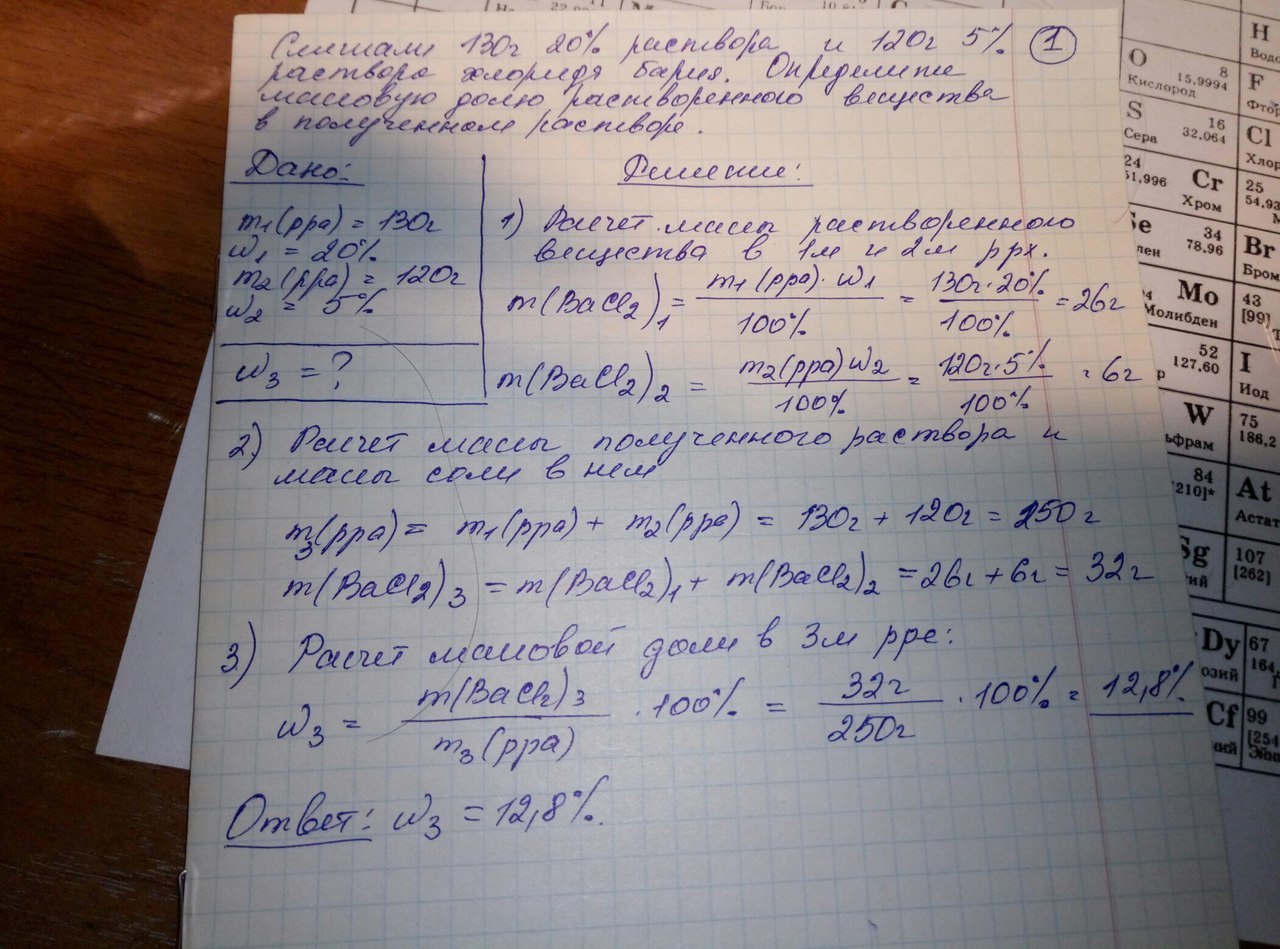 Смешали 130г 20% раствора и 120г 5% ①
раствора хлорида бария. Определите
массовую долю растворенного вещества
в полученном растворе.
Дано:
m₁(рра) = 130г
ω₁ = 20%
m₂(рра) = 120г
ω₂ = 5%
ω₃ = ?
Решение:
1) Расчет массы растворенного
вещества в 1м и 2м ррх.
m(BaCl₂)₁ = m₁(рра)·ω₁ / 100% = 130г·20% / 100% = 26г
m(BaCl₂)₂ = m₂(рра)ω₂ / 100% = 120г·5% / 100% = 6г
2) Расчет массы полученного раствора и
массы соли в нем
m₃(рра) = m₁(рра) + m₂(рра) = 130г + 120г = 250г
m(BaCl₂)₃ = m(BaCl₂)₁ + m(BaCl₂)₂ = 26г + 6г = 32г
3) Расчет массовой доли в 3м рре:
ω₃ = m(BaCl₂)₃ / m₃(рра) · 100% = 32г / 250г · 100% = 12,8%
Ответ: ω₃ = 12,8%.
H
O 8
Кислород 15,9994
F
S 16
Сера 32,064
Cl
24
51,996 Cr
Хром
25
Se 34
78,96
Br
Бром
Mo
Молибден
43
[99]
52
127,60
I
Иод
W
75
186,2
84
[210]*
At
Астат
Sg
107
[262]
Dy
67
Cf
99